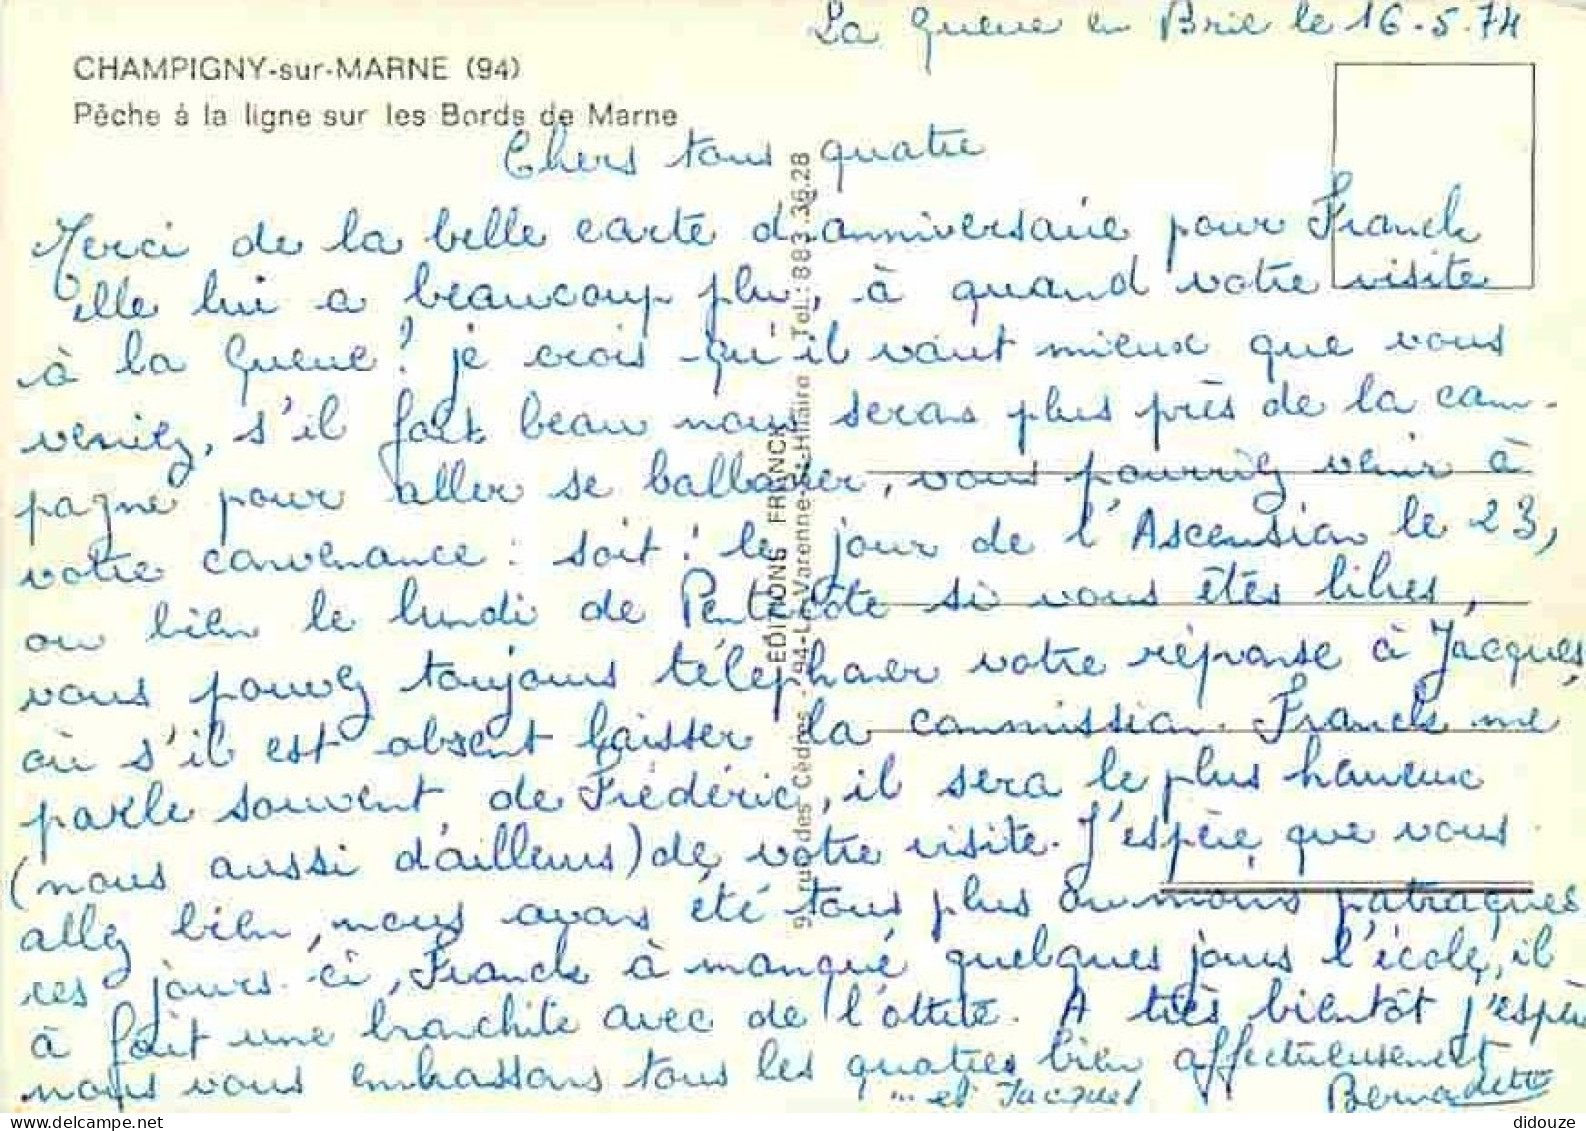 La Queue en Brie le 16-5-74
CHAMPIGNY-sur-MARNE (94)
Pêche à la ligne sur les Bords de Marne
Chers tous quatre
Merci de la belle carte d'anniversaire pour Franck
elle lui a beaucoup plu, à quand votre visite
à la Queue? je crois qu'il vaut mieux que vous
veniez, s'il fait beau nous seras plus près de la cam-
pagne pour aller se ballader, vous pourriez venir à
votre convenance : soit! le jour de l'Ascension le 23,
ou bien le lundi de Pentecôte si vous êtes libres,
vous pouvez toujours téléphoner votre réponse à Jacques,
où s'il est absent laisser la commission. Franck me
parle souvent de Frédéric, il sera le plus heureux
(nous aussi d'ailleurs) de votre visite. J'espère que vous
allez bien, nous avons été tous plus ou moins patraques
ces jours-ci, Franck à manqué quelques jours l'école, il
à fait une bronchite avec de l'ottite. A très bientôt j'espère
nous vous embrassons tous les quatres bien affectueusement
... et Jacques Bernadette
EDITIONS FRANCK
9 rue des Cèdres - 94-La Varenne-St-Hilaire Tel.: 883.36.28
didouze